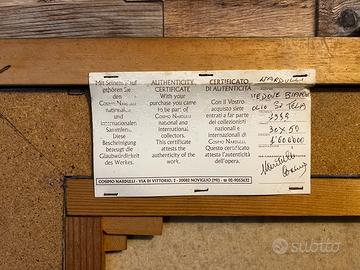 Mit Seinem Kauf
gehören Sie
den
COSIMO NARDULLI
nationalen
und
internationalen
Sammlern.
Diese
Bescheinigung
bezeugt die
Glaubwürdigkeit
des Werkes.
AUTHENTICITY
CERTIFICATE
With your
purchase you came
to be part of
COSIMO NARDULLI
national and
international
collectors.
This certificate
attests the
authenticity of the
work.
CERTIFICATO
DI AUTENTICITÀ
Con il Vostro
acquisto siete
entrati a far parte
dei collezionisti
nazionali e
internazionali di
COSIMO NARDULLI.
Questo certificato
attesta l'autenticità
dell'opera.
NARDULLI
OLIO SU TELA
1995
30x50
COSIMO NARDULLI - VIA DI VITTORIO, 2 - 20082 NOVIGLIO (MI) - ☎ 02-9053632
subito